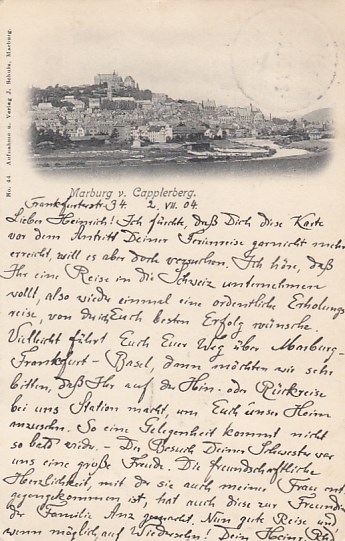 No. 44 Aufnahme u. Verlag J. Schulz, Marburg.
Marburg v. Capplerberg.
Frankfurterstr. 34. 2. VII. 04.
Lieber Heinrich! Ich fürchte, daß Dich diese Karte
vor dem Antritt Deiner Ferienreise garnicht mehr
erreicht, will es aber doch versuchen. Ich höre, daß
Ihr eine Reise in die Schweiz unternehmen
wollt, also wieder einmal eine ordentliche Erholungs
reise, von der ich Euch besten Erfolg wünsche.
Vielleicht führt Euch Euer Weg über Marburg-
Frankfurt - Basel, dann möchten wir sehr
bitten, daß Ihr auf der Hin- oder Rückreise
bei uns Station macht, um Euch unser Heim
anzusehn. So eine Gelegenheit kommt nicht
so bald wieder. - Der Besuch Deiner Schwester war
uns eine große Freude. Die freundschaftliche
Herzlichkeit, mit der sie auch meiner Frau ent
gegengekommen ist, hat auch diese zur Freundin
der Familie gemacht. Nun gute Reise und
wenn möglich auf Wiedersehn! Dein Heinr.